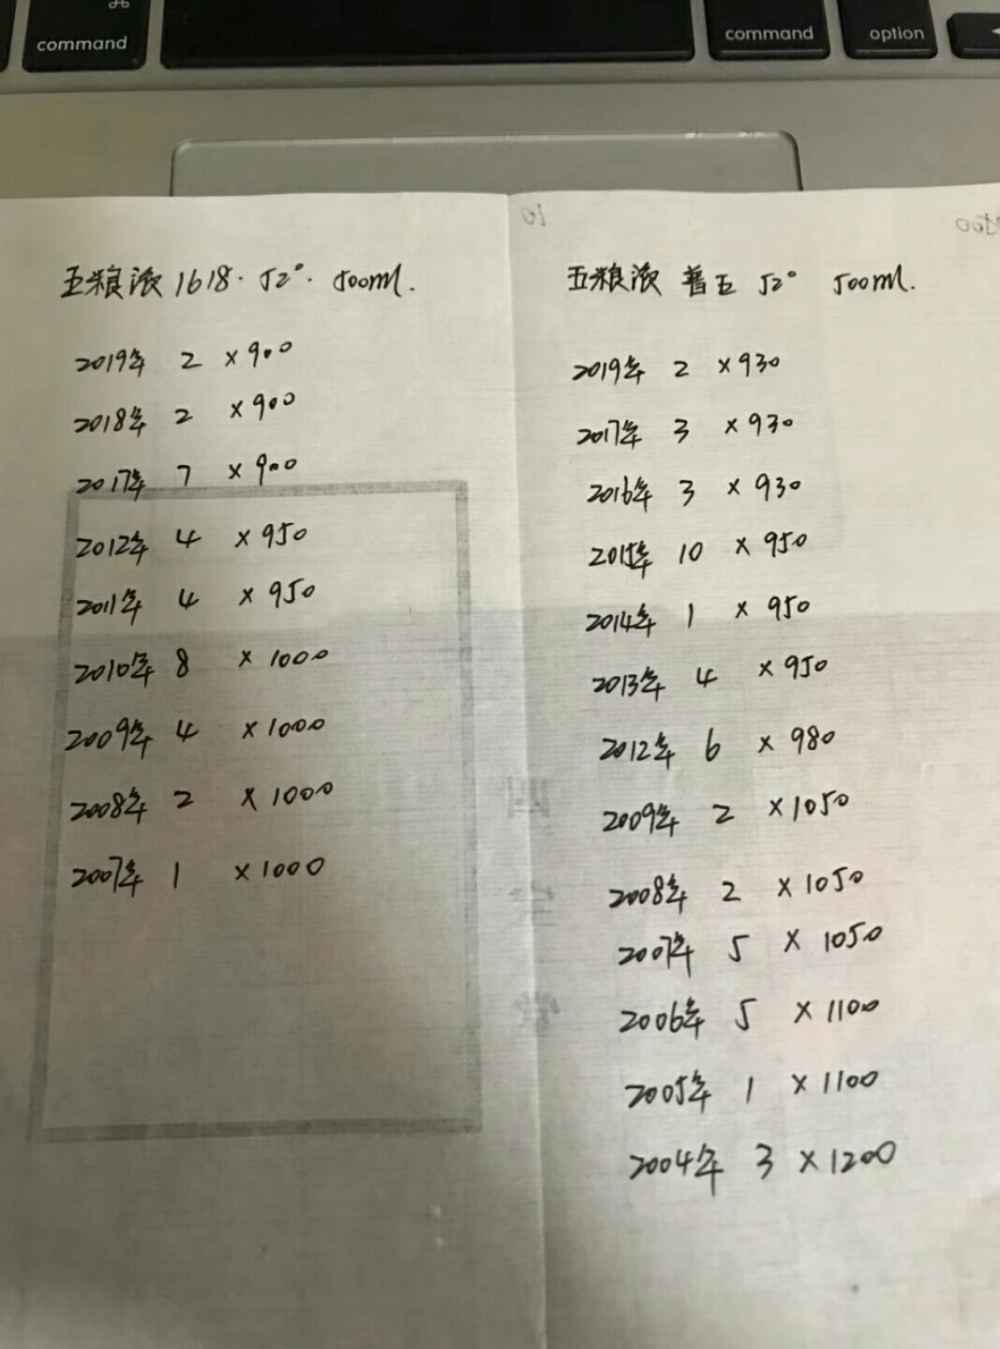 ⌘
command
command
option
10
五粮液 1618. 52°. 500ml.
2019年 2 ×900
2018年 2 ×900
2017年 7 ×900
2012年 4 ×950
2011年 4 ×950
2010年 8 ×1000
2009年 4 ×1000
2008年 2 ×1000
2007年 1 ×1000
五粮液 普五 52° 500ml.
2019年 2 ×930
2017年 3 ×930
2016年 3 ×930
2015年 10 ×950
2014年 1 ×950
2013年 4 ×950
2012年 6 ×980
2009年 2 ×1050
2008年 2 ×1050
2007年 5 ×1050
2006年 5 ×1100
2005年 1 ×1100
2004年 3 ×1200